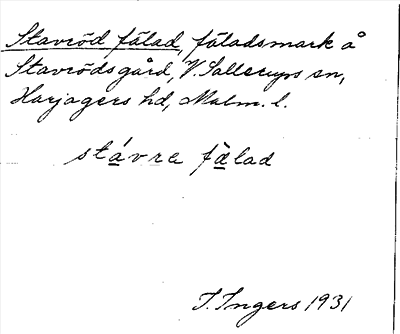 Stavröd fälad, fäladsmark å
Stavrödsgård, V. Sallerups sn,
Harjagers hd, Malm. l.
stávre fàlad
I. Ingers 1931